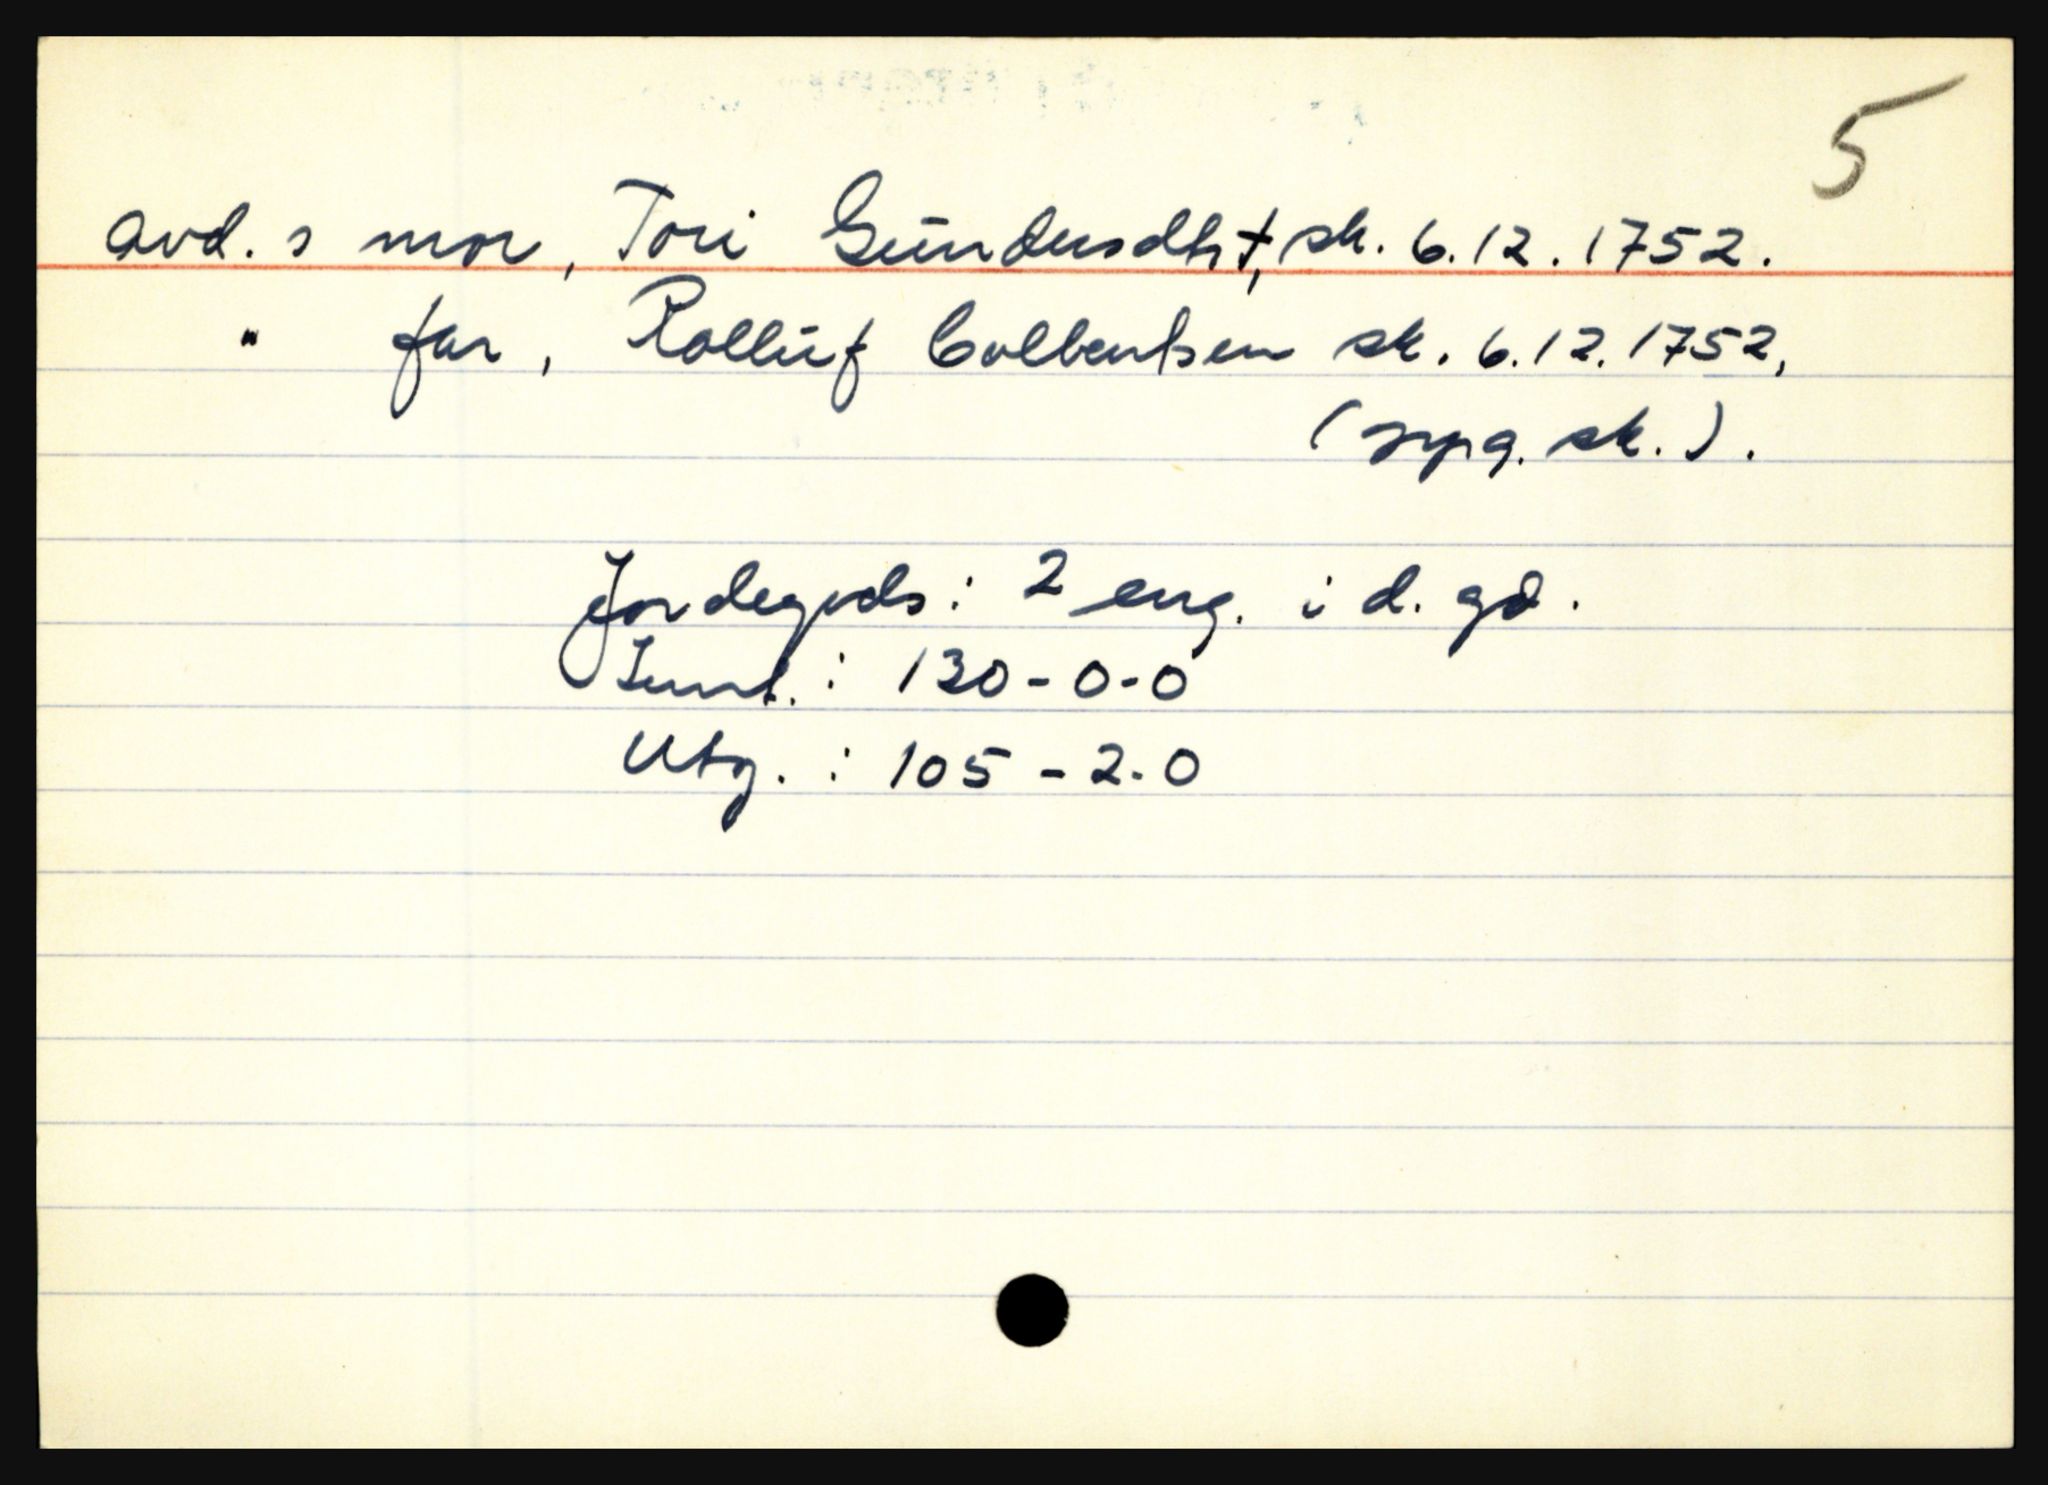 5
avd. s mor, Tori Gŭndersdtr †, sk. 6.12.1752.
" far, Rollŭf Colbentsen sk. 6.12.1752,
sk.).
Jordegods: 2 eng. i d. gd.
Innt.: 130-0-0
Utg.: 105-2-0